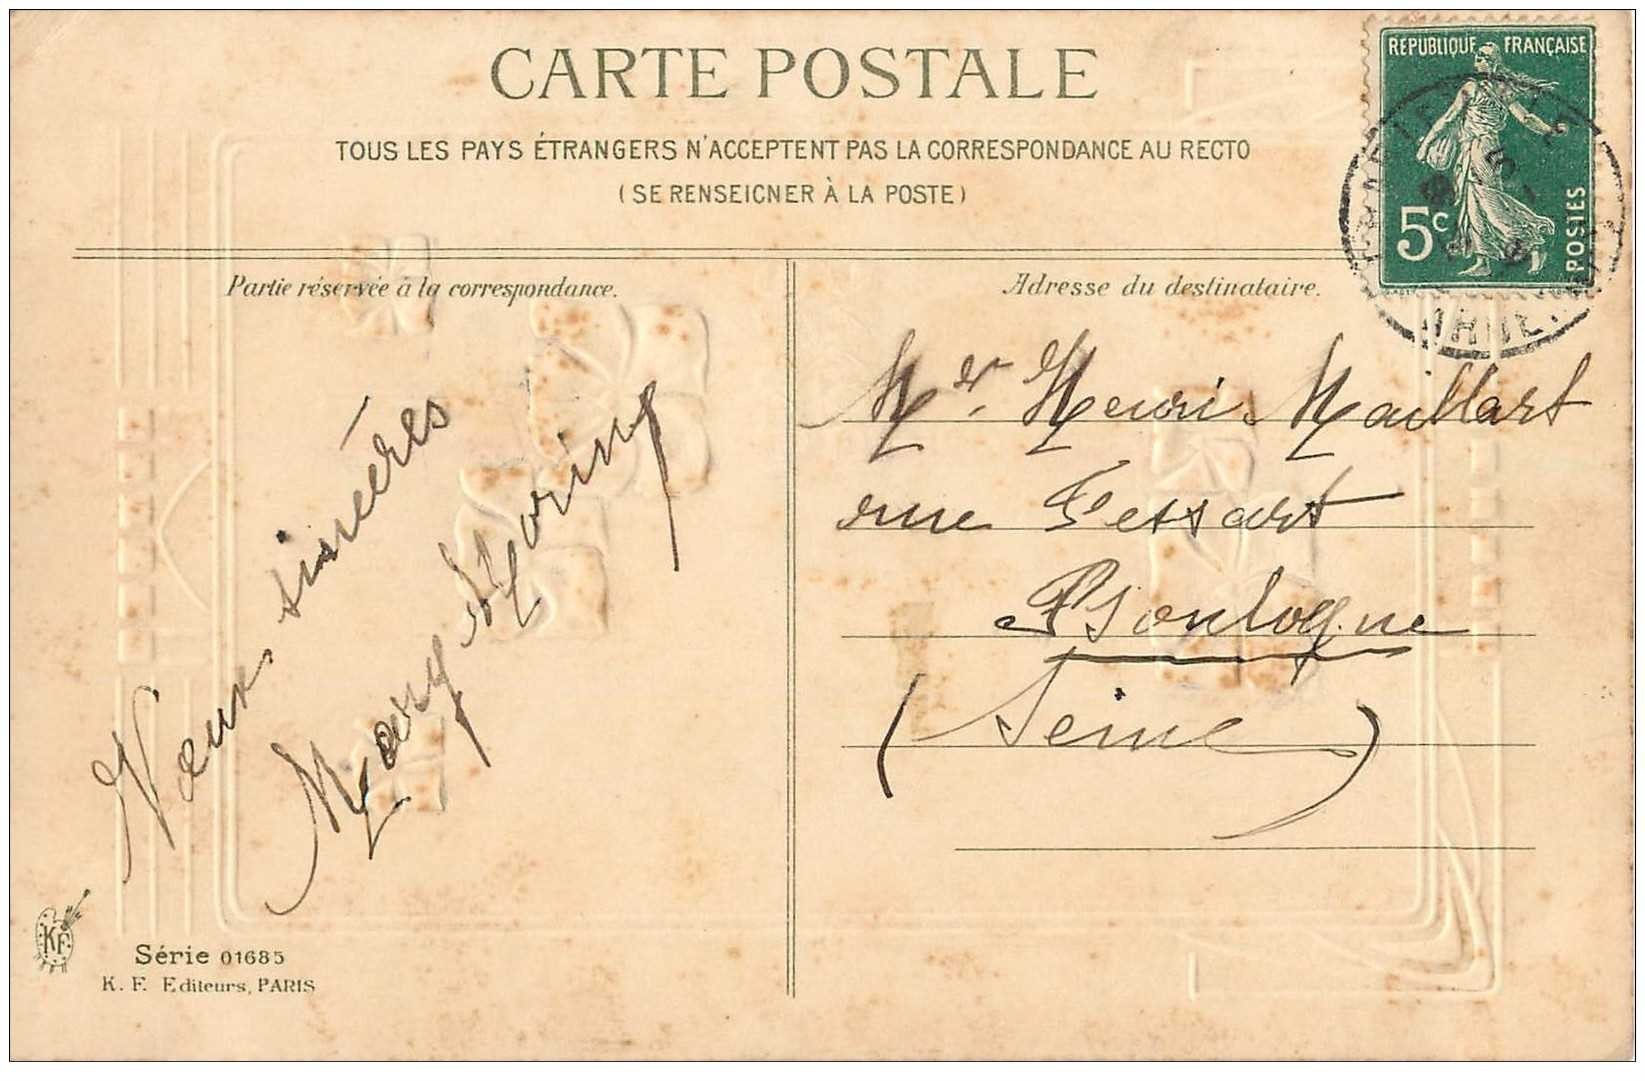 CARTE POSTALE
TOUS LES PAYS ÉTRANGERS N'ACCEPTENT PAS LA CORRESPONDANCE AU RECTO
(SE RENSEIGNER À LA POSTE)
REPUBLIQUE FRANÇAISE
5c
POSTES
Partie réservée à la correspondance.
Adresse du destinataire.
Vœux sincères
Mary
Mr. Henri Maillart
rue Fessart
Boulogne
(Seine)
KF
Série 01685
K. F. Editeurs, PARIS